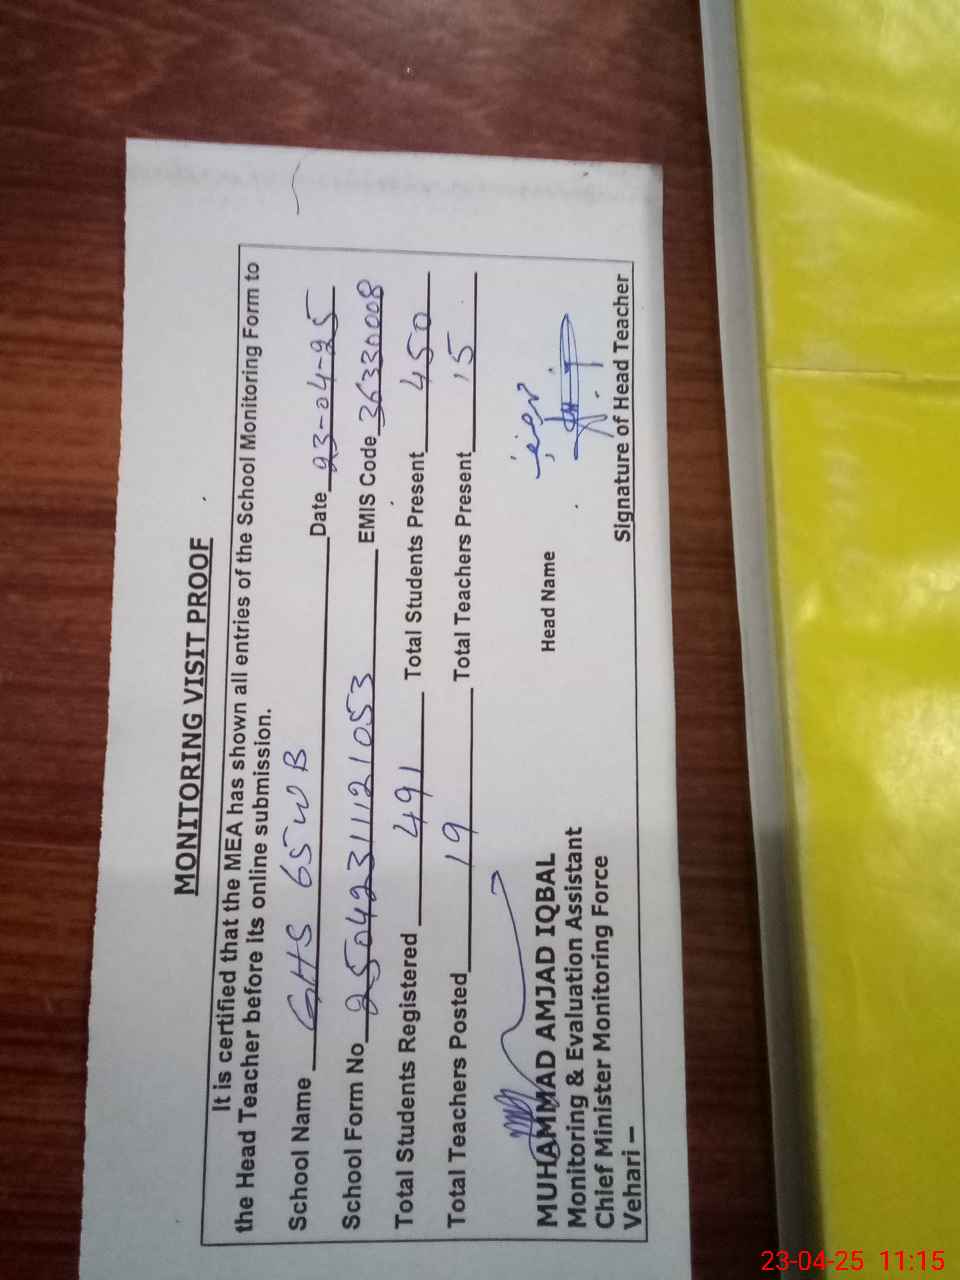 MONITORING VISIT PROOF
It is certified that the MEA has shown all entries of the School Monitoring Form to
the Head Teacher before its online submission.
School Name GHS 65 WB Date 23-04-25
School Form No 250423111121053 EMIS Code 36330008
Total Students Registered 491 Total Students Present 450
Total Teachers Posted 19 Total Teachers Present 15
Head Name
MUHAMMAD AMJAD IQBAL
Monitoring & Evaluation Assistant
Chief Minister Monitoring Force
Vehari – Signature of Head Teacher
23-04-25 11:15